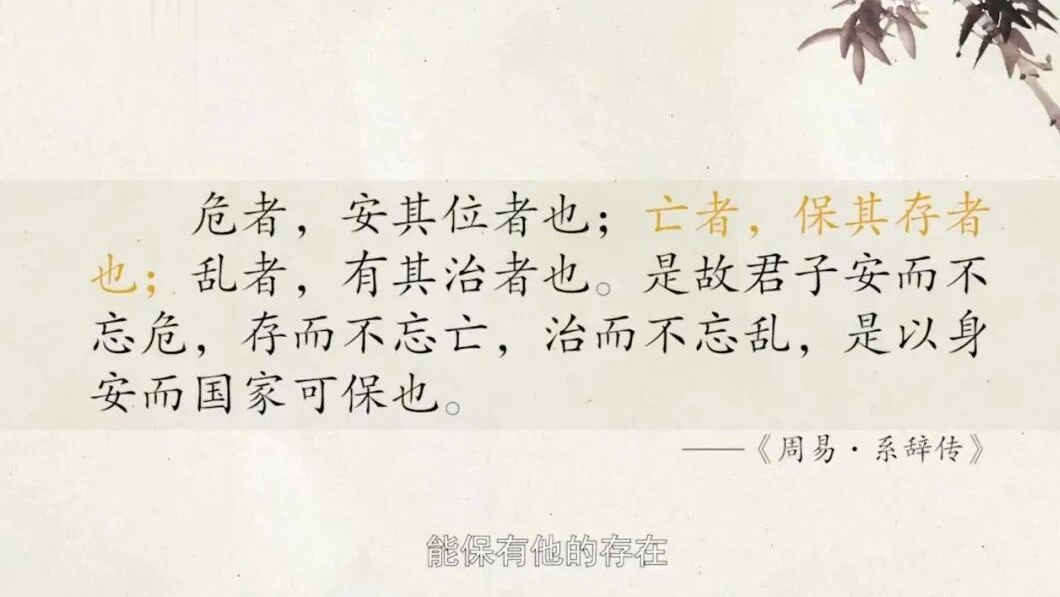 危者，安其位者也；亡者，保其存者
也；乱者，有其治者也。是故君子安而不
忘危，存而不忘亡，治而不忘乱，是以身
安而国家可保也。
——《周易·系辞传》
能保有他的存在